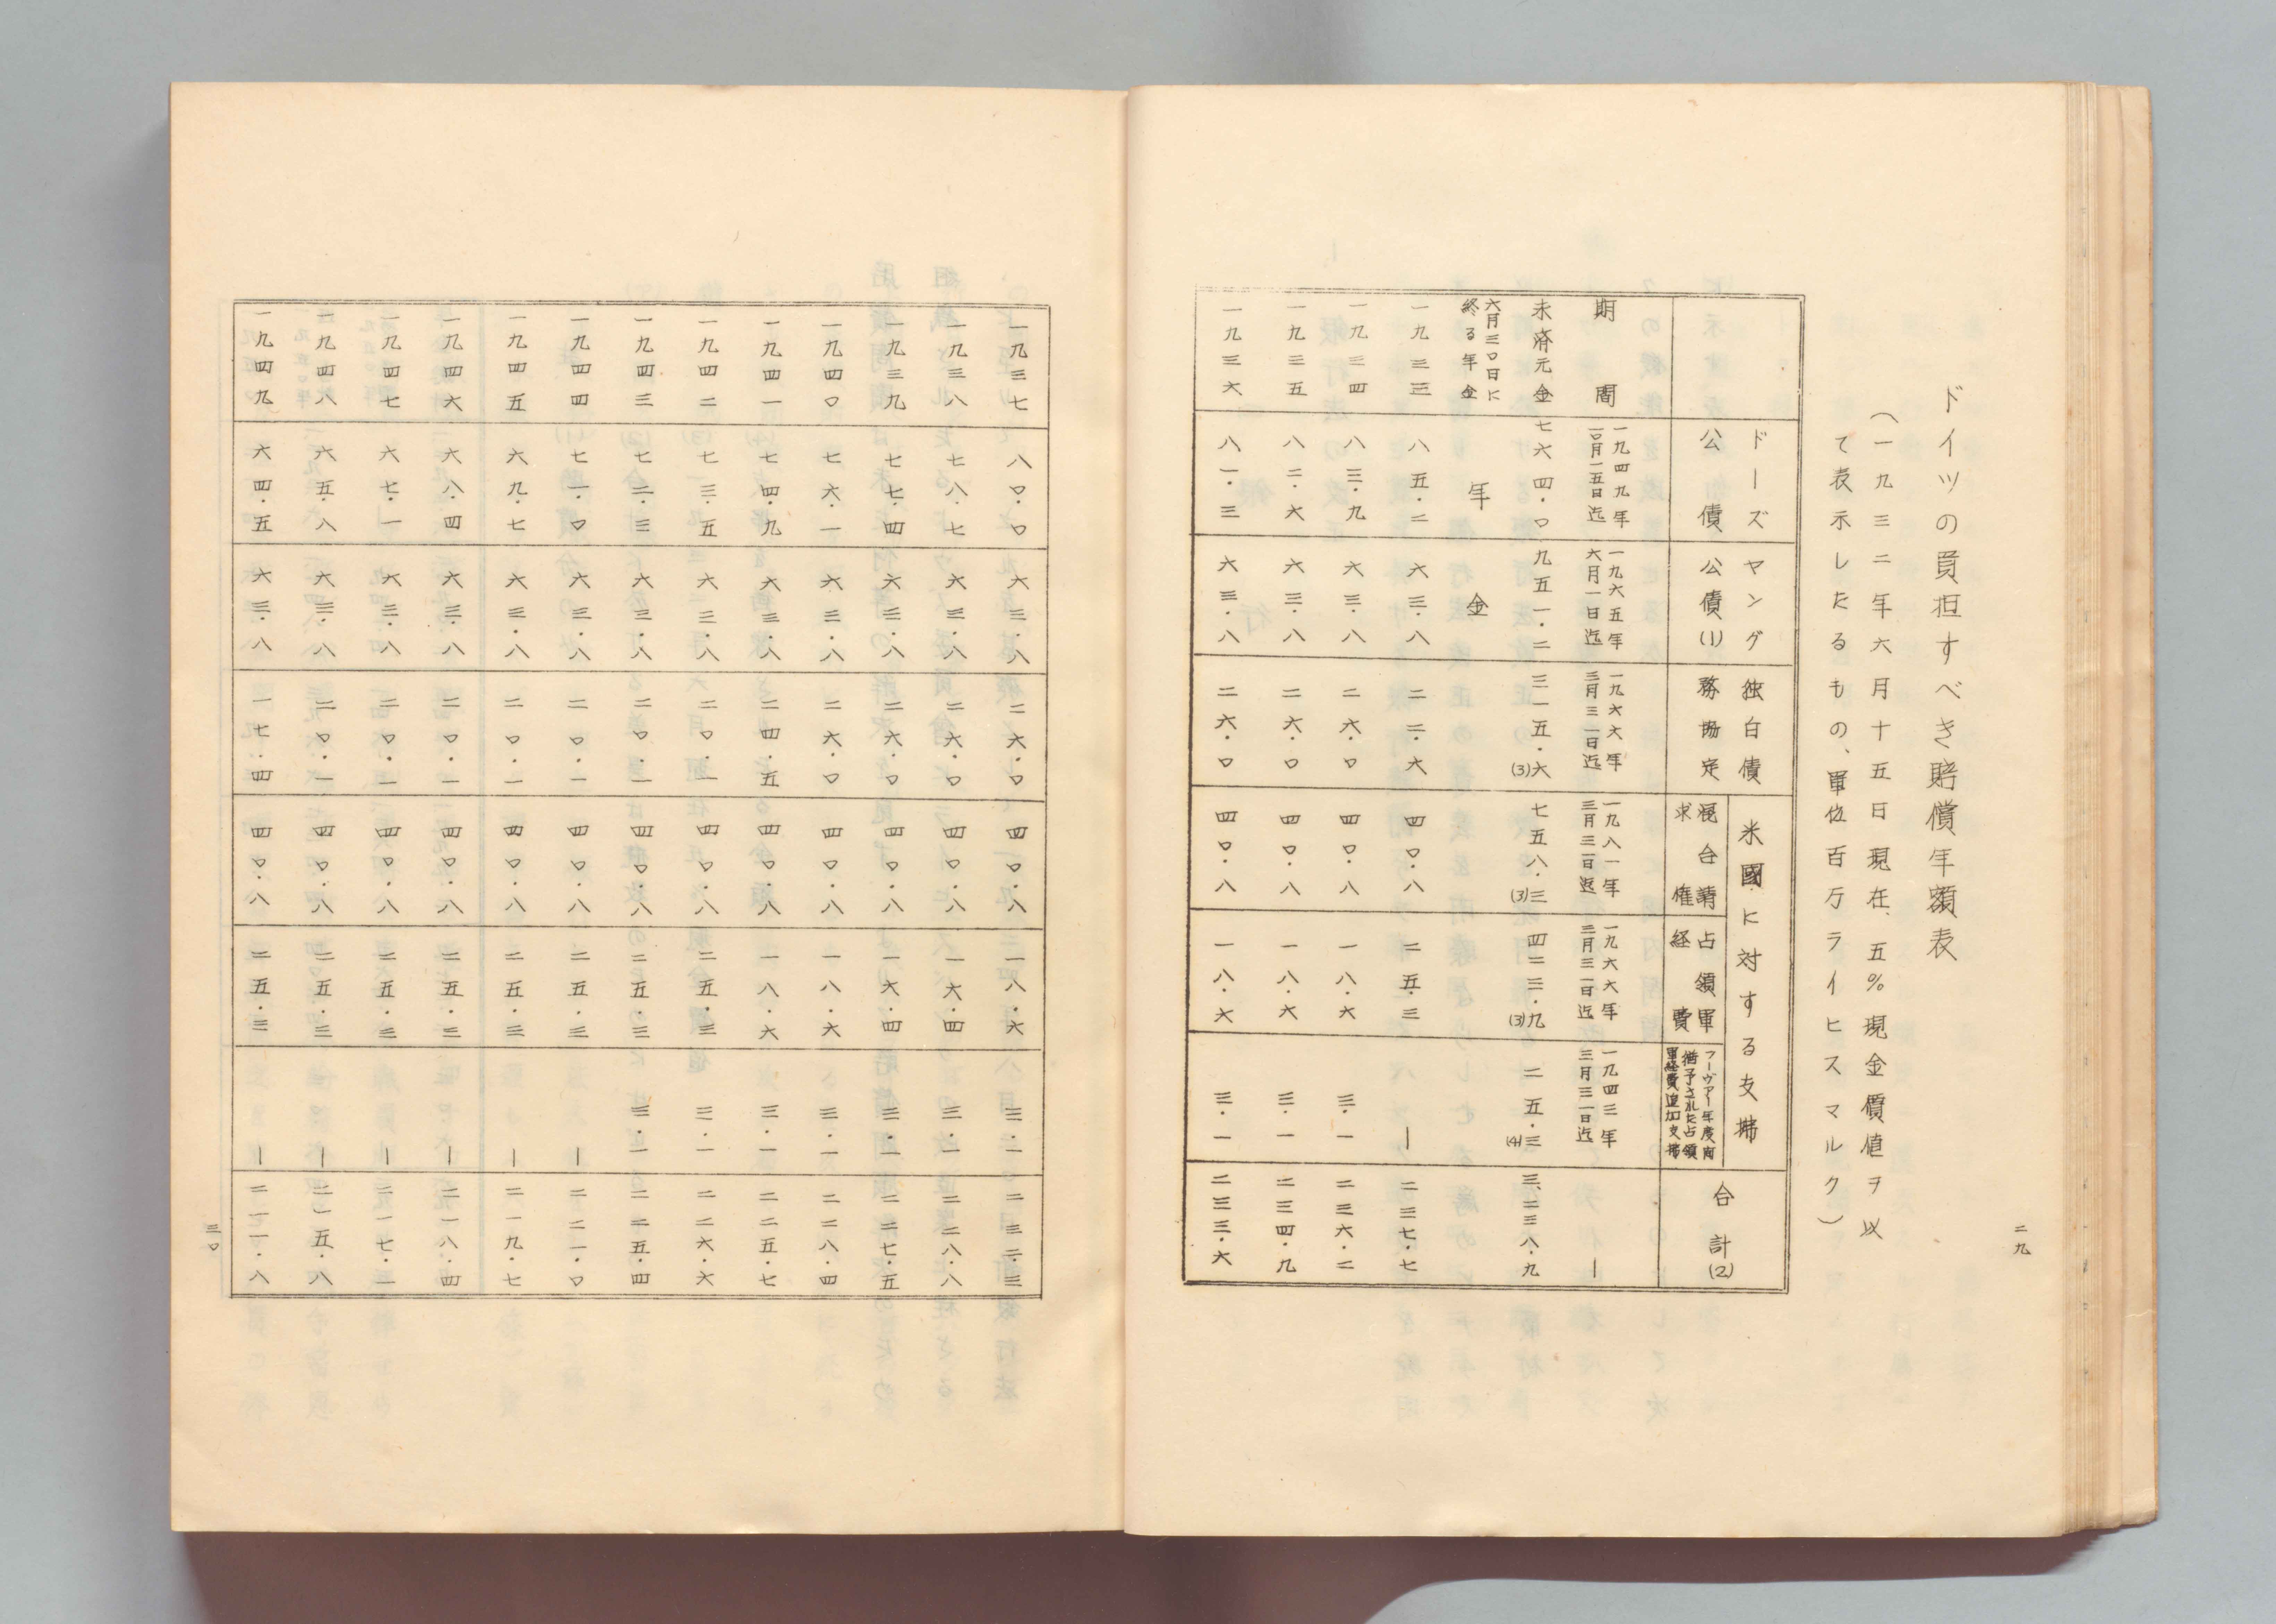 二九
ドイツの負担すべき賠償年額表
(一九三二年六月十五日現在、五%現金價値ヲ以
て表示したるもの、單位百万ライヒスマルク)
ドーズ公債 ヤング公債(1) 独白債務協定 米國に対する支拂 合計(2)
混合請求権 占領軍経費 フーヴァー年度中猶予された占領軍経費追加支拂
期間 一九四九年一〇月一五日迄 一九六五年六月一日迄 一九六六年三月三一日迄 一九八一年三月三一日迄 一九六六年三月三一日迄 一九四三年三月三一日迄 —
未済元金 七六四.〇 九五一.二 三一五.六(3) 七五八.三(3) 四二三.九(3) 二五.三(4) 三、二三八.九
六月三〇日に終る年金 年金
一九三三 八五.二 六三.八 二二.六 四〇.八 二五.三 — 二三七.七
一九三四 八三.九 六三.八 二六.〇 四〇.八 一八.六 三.一 二三六.二
一九三五 八二.六 六三.八 二六.〇 四〇.八 一八.六 三.一 二三四.九
一九三六 八一.三 六三.八 二六.〇 四〇.八 一八.六 三.一 二三三.六
一九三七 八〇.〇 六三.八 二六.〇 四〇.八 一八.六 三.一 二三二.三
一九三八 七八.七 六三.八 二六.〇 四〇.八 一六.四 三.一 二二八.八
一九三九 七七.四 六三.八 二六.〇 四〇.八 一六.四 三.一 二二七.五
一九四〇 七六.一 六三.八 二六.〇 四〇.八 一八.六 三.一 二二八.四
一九四一 七四.九 六三.八 二四.五 四〇.八 一八.六 三.一 二二五.七
一九四二 七三.五 六三.八 二〇.一 四〇.八 二五.三 三.一 二二六.六
一九四三 七二.三 六三.八 二〇.一 四〇.八 二五.三 三.一 二二五.四
一九四四 七一.〇 六三.八 二〇.一 四〇.八 二五.三 — 二二一.〇
一九四五 六九.七 六三.八 二〇.一 四〇.八 二五.三 — 二一九.七
一九四六 六八.四 六三.八 二〇.一 四〇.八 二五.三 — 二一八.四
一九四七 六七.一 六三.八 二〇.一 四〇.八 二五.三 — 二一七.一
一九四八 六五.八 六三.八 二〇.一 四〇.八 二五.三 — 二一五.八
一九四九 六四.五 六三.八 一七.四 四〇.八 二五.三 — 二一一.八
三〇